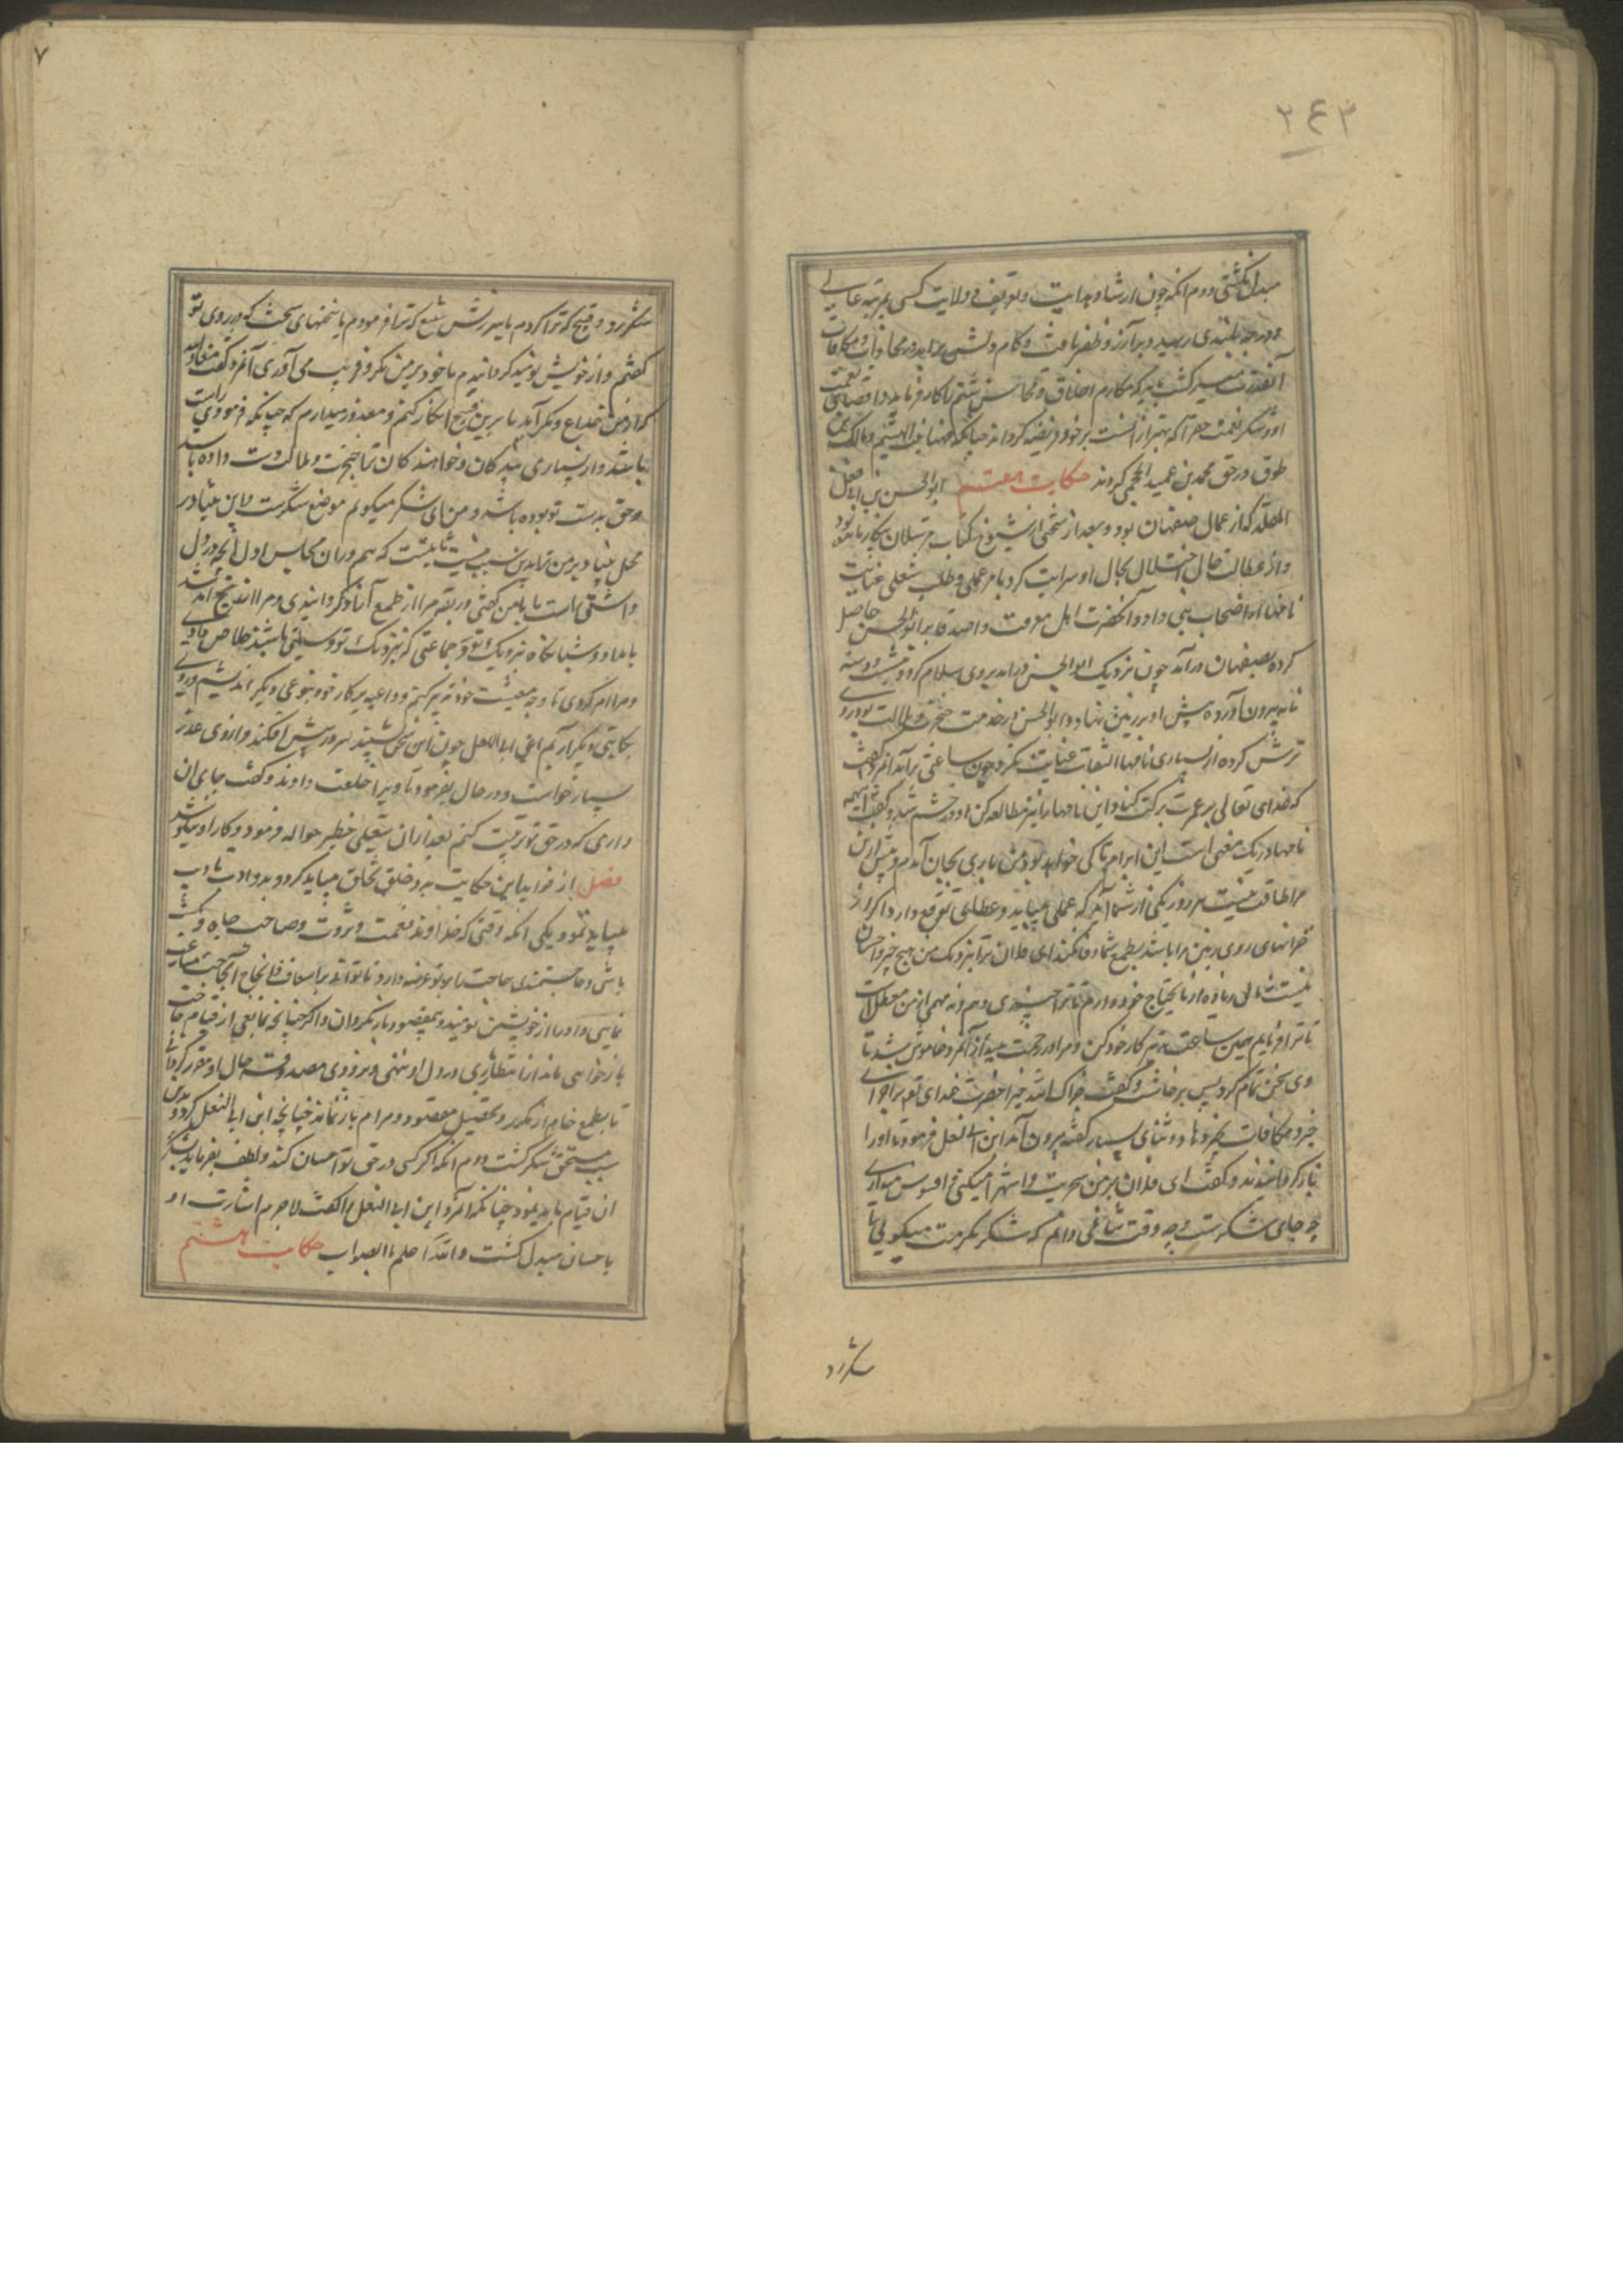 ۲۴۳
مبدل نگشتی دوم آنکه چون ارشاد و هدایت و تعریف و ولایت کسی بمرتبه عالی
و درجه بلندی رسید و بر آرزو ظفر یافت و کام دلش برآید در مجازات و مکافات
آنقدر میسر گشت باید که مکارم اخلاق و محاسن شیم را کار فرماید و اقتضای نعمت
او و شکر نعمت
طوق در حق محمد بن عمید الجمحی کردند حکایت هفتم ابوالحسن بن ابی البغل
که از عمال صفهان بود و بعد از
و از عطالت حال اختلال بحال او سرایت کرد بامر عملی و طلب شغلی عنایت
نامها از اصحاب بنی داود آنحضرت اهل معرفت و اصدقا برابوالحسن حاصل
کرده بصفهان درآمد چون نزدیک ابوالحسن درآمد بر وی سلام کرد و بنشست و دسته
نامه بیرون آورده پیش او بر زمین نهاد و ابوالحسن در خدمت ضجرت و ملالت بود روی
ترش کرده از بسیاری نامها التفات عنایت نکرد چون ساعتی برآمد آنمرد گفت
که خدای تعالی بر عمرت برکت کناد این نامها را نیز مطالعه کن او در خشم شد و گفت اینهمه
نامها در یک معنی است این ابرام تا کی خواهد بود من باری بجان آمدم و بیش ازین
مرا طاقت نیست هر روز یکی از شما آید که عملی میباید و عطائی توقع دارد اگر از
خزانهای روی زمین مرا باشد بطمع شما وفا نکند ای فلان ترا بنزدیک من هیچ خیر و احسان
نیست نه مالی زیاده از مایحتاج خود دارم تا ترا چیزی دهم و نه مهمی از من معطل است
تا ترا فرمایم همین ساعت تدبیر کار خود کن و مرا در زحمت میندازد آنمرد خاموش بود تا
وی سخن تمام کرد پس برخاست و گفت جزاک الله خیرا حضرت خدای تعم ترا جزای
خیر و مکافات بخیر دهاد و ثنای بسیار گفته بیرون آمد ابن ابی البغل فرمود تا او را
باز گردانیدند و گفت ای فلان بر من سخریت و استهزا میکنی و افسوس میداری
چه جای شکرست و چه وقت ثنا نمی دانم که شکر بکرمت میکوئی یا
شکر رد
۷
شکر رد و قبیح که ترا کردم یا سرزنش شنیع که ترا فرمودم یا سخنهای سخت که در روی تو
گفتم و از خویش نومید گردانیدم یا خود بر من مکر و فریب می آوری آنمرد گفت معاذ الله
که از من خداع و مکر آید یا برین قبیح انکار کنم و معذور میدارم که چنانکه فرمودی راست
باشد و از بسیاری بندگان و خواهندگان ترا ضجرت و ملالت دست داده باشد
و حق بدست تو بوده باشد و من ای شکر میکویم موضع شکرست و این بنیاد بر
محل بنیاد بر من ترا بدین سبب منت ثابتست که هم در آن مجلس اول آنچه در دل
داشتی راست با من گفتی و ربقه مرا از طمع آزاد گردانیدی و مرا از
بامداد و شبانگاه نزدیک تو و جماعتی که بنزدیک تو وسیلتی باشد خلاص دادی
و مرا امر کردی تا وجه معیشت خود تدبیر کنم و داعیه بر کار خود بنوعی دیگر اندیشم و روی
بجایی دیگر آرم ابن ابی البغل چون این سخن بشنید سر در پیش افکند و از وی عذر
بسیار خواست و در حال بفرمود تا ویرا خلعت دادند و گفت جای آن
داری که در حق تو تربیت کنم بعد از آن شغلی خطیر حواله فرمود و کار او نیکو شد
فصل از فواید این حکایت بدو خلق تخلق میباید کرد و بدو ادب تادب
میباید نمود یکی آنکه وقتی که خداوند نعمت و ثروت و صاحب جاه و
باشی و حاجتمندی حاجت را بر تو عرضه دارد و نتواند بر اسعاف و انجاح آن حاجت
نمایی و او را از خویشتن نومید و بی مقصود باز نکردان و اگر چنانچه مانعی از قیام حاجت
باز خواهی ماند از انتظاری در دل او ننهی و بزودی مصدوقه حال او مقرر گردانی
تا بطمع خام از تدبیر و تحصیل مقصود و مرام باز نماند چنانچه ابن ابی البغل کرد و بدین
سبب مستحق شکر گشت دوم آنکه اگر کسی در حق تو احسان کند و لطف بفرماید بشکر
آن قیام باید نمود چنانکه آنمرد ابن ابی البغل را گفت لاجرم اشارت او
باحسان مبدل گشت والله اعلم بالصواب حکایت هشتم